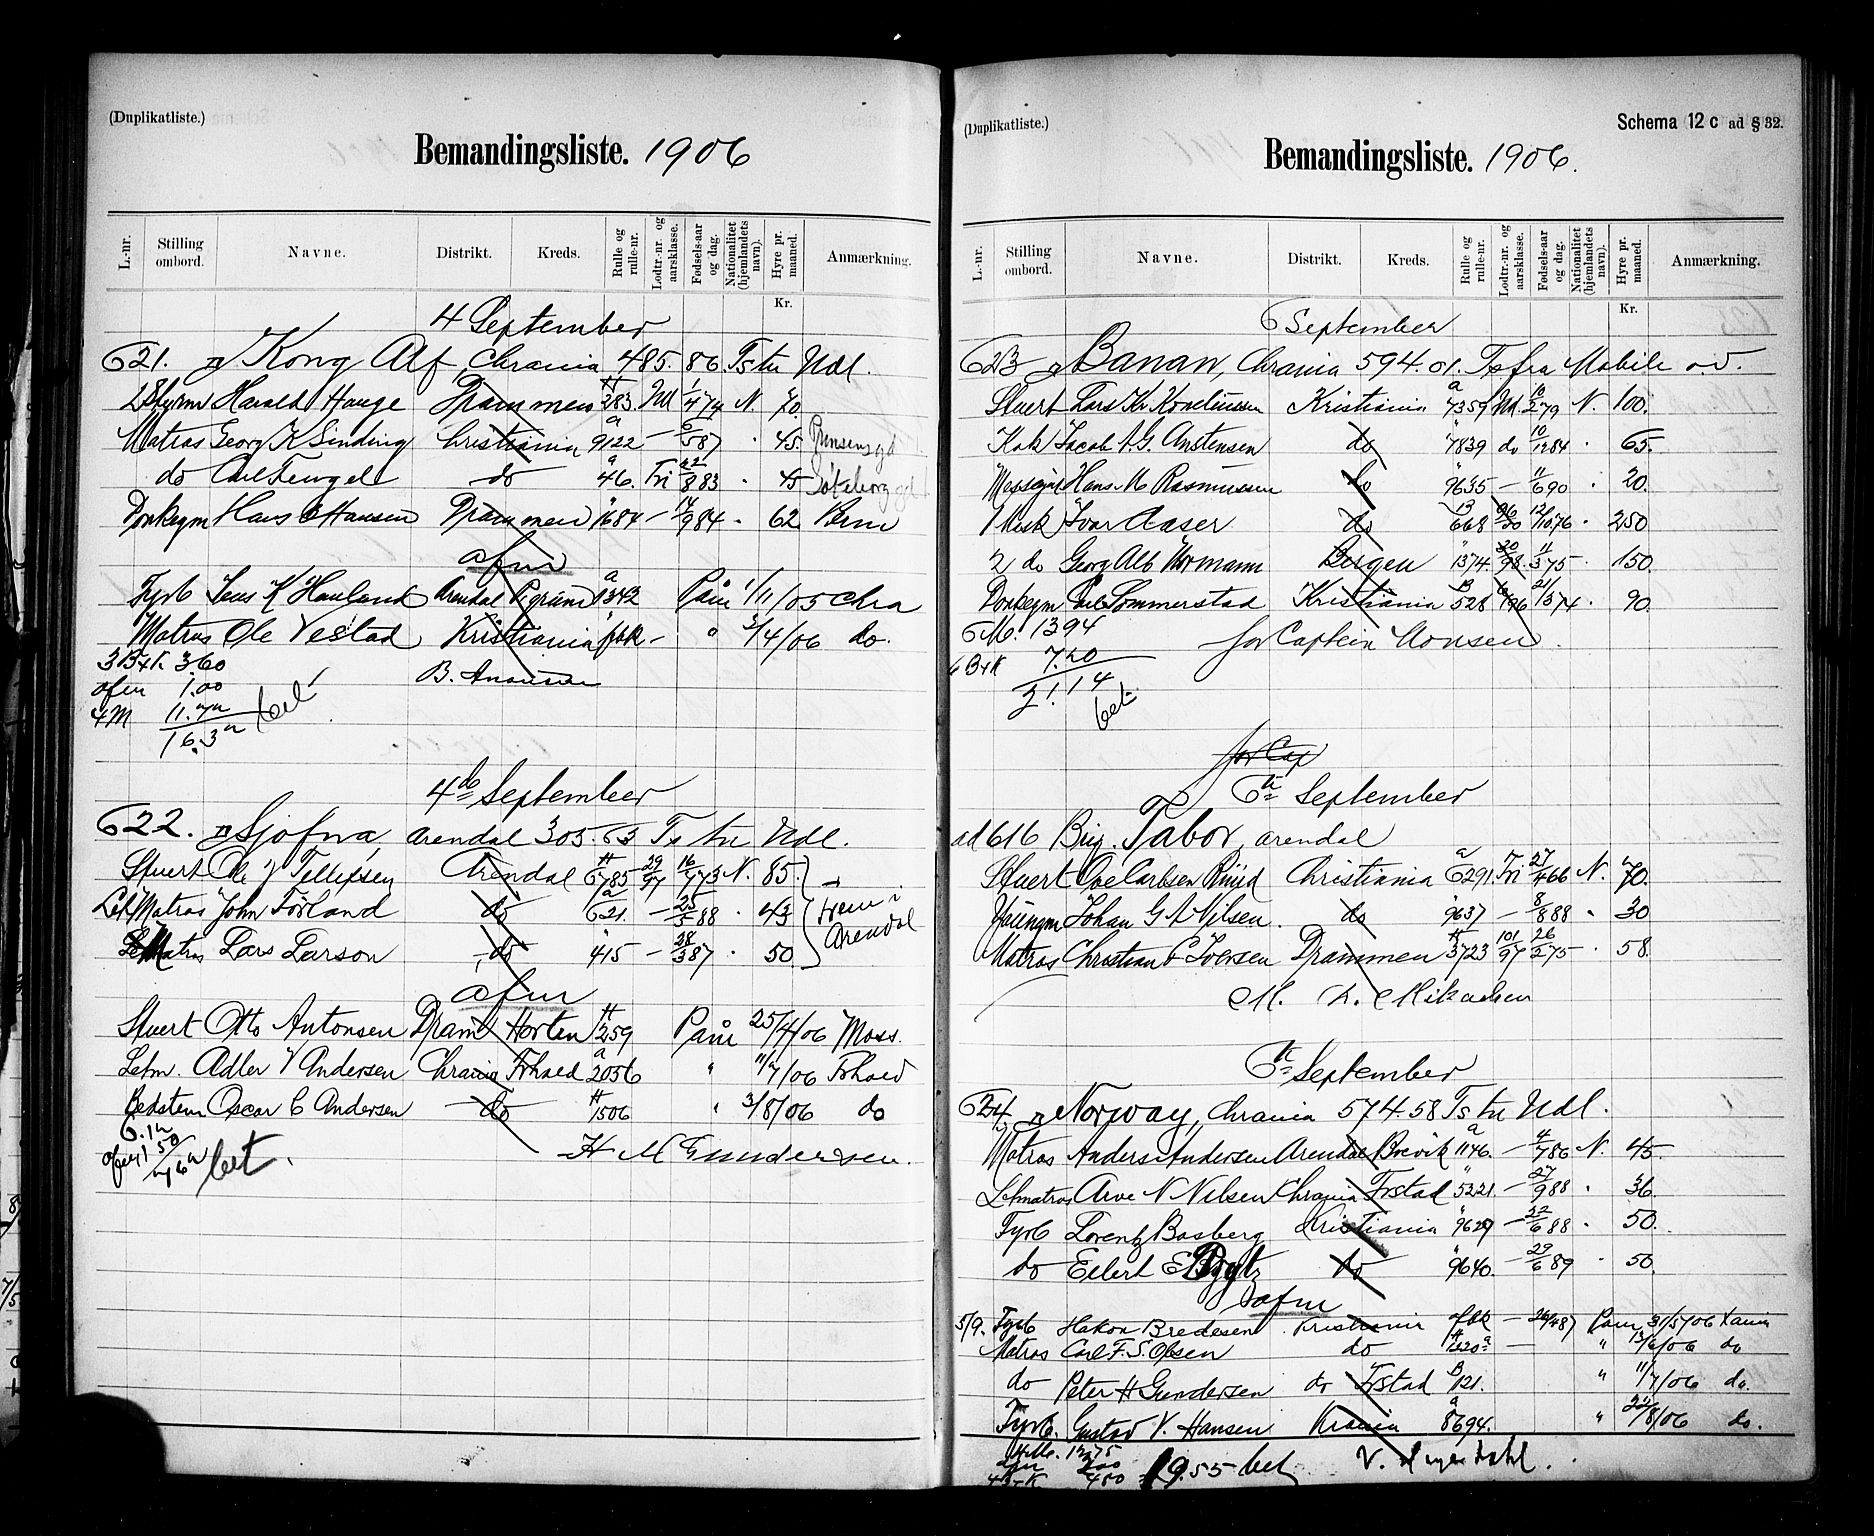 (Duplikatliste.)
Bemandingsliste. 1906
L.-nr. Stilling ombord. Navne. Distrikt. Kreds. Rulle og rulle-nr. Lodtr.-nr. og aarsklasse. Fødsels-aar og dag. Nationalitet (hjemlandets navn). Hyre pr. maaned. Anmærkning.
Kr.
4 September
621. Kong Alf, Chrania 485.86 Ts tu Udl.
2 Styrm Harald Hauge Drammen 283. Md 1/4 74 N. 70.
Matros Georg K Sinding Christiania a 9122 – 6/5 87 · 45.
do Carl Fengel do a 46. Fri 22/8 83 · 45 Göteborg
Donkeym Hans C Hansen Drammen 1684 – 14/9 84 · 62
afm
Fyrb Jens K Hauland Arendal a 1342 Paam 1/11/05 Chra
Matros Ole Vestad Kristiania fbk – " 3/4/06 do.
3 B+K 3.60
afm 1.00
4 M 11.72
16.32 bet
4de September
622. Sjofna, Arendal 305.63 Ts tu Udl.
Stuert Ole J Tellefsen Arendal 6785 29/97 16/7 73 N. 85.
Let Matros John Forland do a 621. – 25/5 88 · 43 Hem i Arendal
LetMatros Lars Larson do " 415 – 28/3 87 · 50
afm
Stuert Otto Antonsen Dram Horten 259 Paam 25/4/06 Moss.
Letm. Adler V Andersen Chrania Frhald a 2056 " 11/7/06 Frhald
Bedstem Oscar C Andersen do 1506 " 3/8/06 do
H M Gundersen.
bet.
(Duplikatliste.)
Schema 12 c ad § 32.
Bemandingsliste. 1906.
L.-nr. Stilling ombord. Navne. Distrikt. Kreds. Rulle og rulle-nr. Lodtr.-nr. og aarsklasse. Fødsels-aar og dag. Nationalitet (hjemlandets navn). Hyre pr. maaned. Anmærkning.
Kr.
6 September
623 Banan, Chrania 594.01. Ts fra Mobile o.v.
Stuert Lars Kr Kornelinssen Kristiania a 7359 Md. 10/2 79 N. 100.
Kok Jacob A. G. Anstensen do " 7839 do 10/12 84 · 65.
Messegut Hans M Rasmussen do " 9635 – 11/6 90 · 20.
1 Mask Ivar Aaser do B 668 12/10 76 · 250
2 do Georg Alb Normann Bergen " 1374. 20/98. 11/3 75 · 150.
Donkeym Carl Sommerstad Kristiania B 528 21/3 74 · 90.
6 M. 13.94 for Captein Monsen
6 B+K 7.20
21.14
bet.
for Cap
6te September
ad 616 Brig. Tabor, Arendal
Stuert Ove Carlsen Ruud Christiania a 6291. Fri 27/4 66 N. 70.
Jungm Johan G A Nilsen do " 9637 – 8/8 88 · 30
Matros Christian C Iversen Drammen 3723 101/97 26/2 75 · 58
M. L. Mikaelsen
6te September
624 Norway, Chrania 574.58 Ts tu Udl.
Matros Anders Andersen Arendal Brevik a 1146. – 4/7 86 N. 45.
Letmatros Arve N Nilsen Chrania Frstad " 5221. – 27/9 88 · 36.
Fyrb Lorentz Basberg Kristiania " 9629 – 22/6 88 · 50.
do Eilert E do " 9640. – 29/6 89 · 50.
afm
5/9. Fyrb Hakon Bredesen Kristiania afbk – 26/4 87 Paam 31/5/06 Xania
Matros Carl F. S. Olsen do 1320 – " 13/6/06 do
do Peter H Gundersen do Frstad B 121. " 11/7/06 do.
Fyrb. Gustav V. Hansen Krania a 8694. " 22/8/06 do.
4 M. 12.75
afm 2.00
4 B+K 4.80 19.55 bet